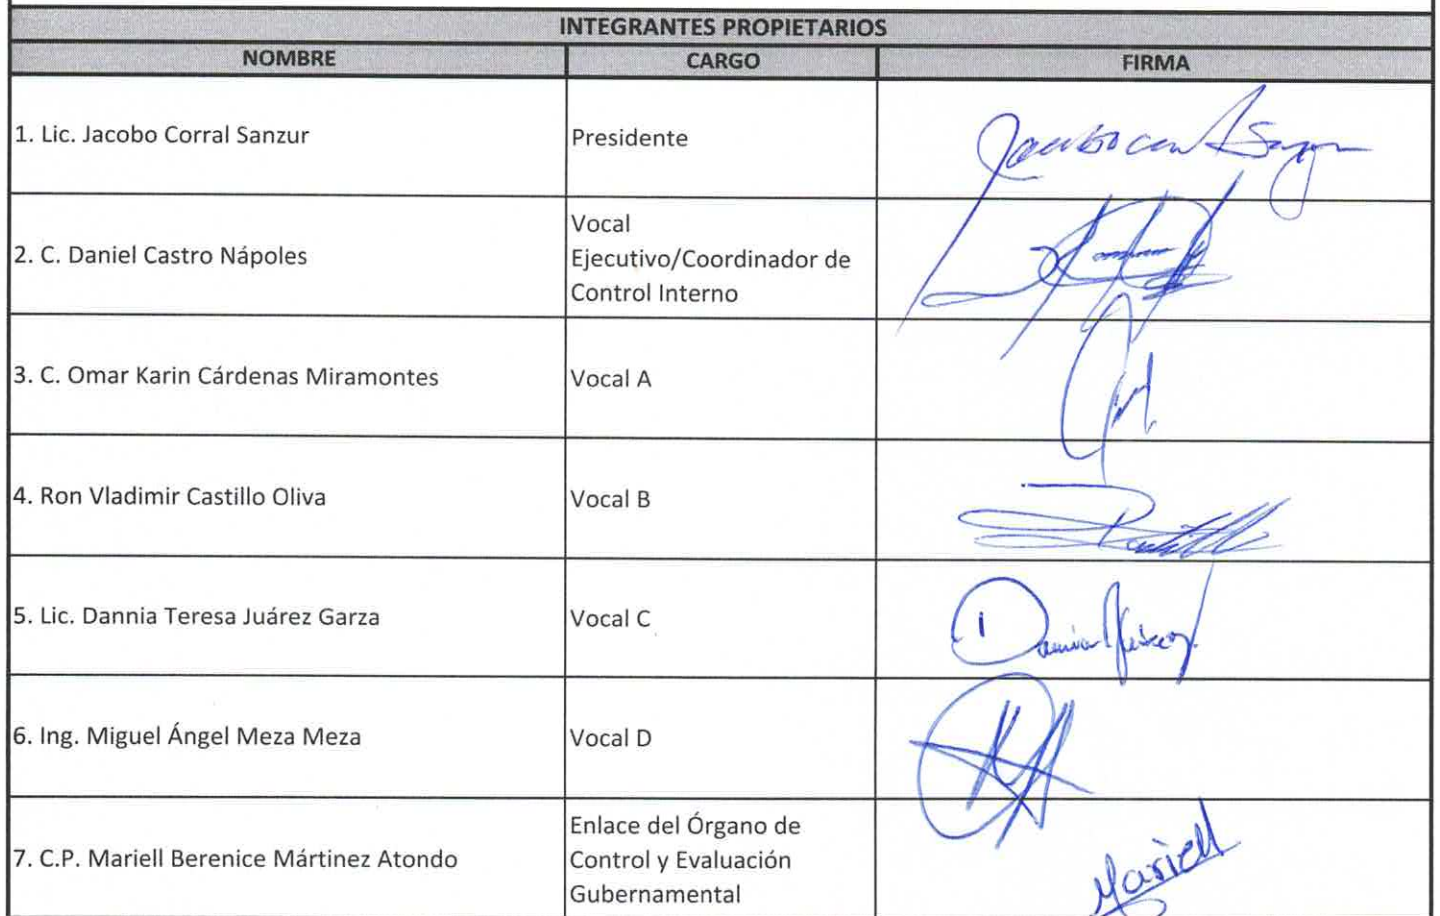 INTEGRANTES PROPIETARIOS
NOMBRE CARGO FIRMA
1. Lic. Jacobo Corral Sanzur
Presidente
2. C. Daniel Castro Nápoles
Vocal
Ejecutivo/Coordinador de
Control Interno
3. C. Omar Karin Cárdenas Miramontes
Vocal A
4. Ron Vladimir Castillo Oliva
Vocal B
5. Lic. Dannia Teresa Juárez Garza
Vocal C
6. Ing. Miguel Ángel Meza Meza
Vocal D
7. C.P. Mariell Berenice Mártinez Atondo
Enlace del Órgano de
Control y Evaluación
Gubernamental
Mariell